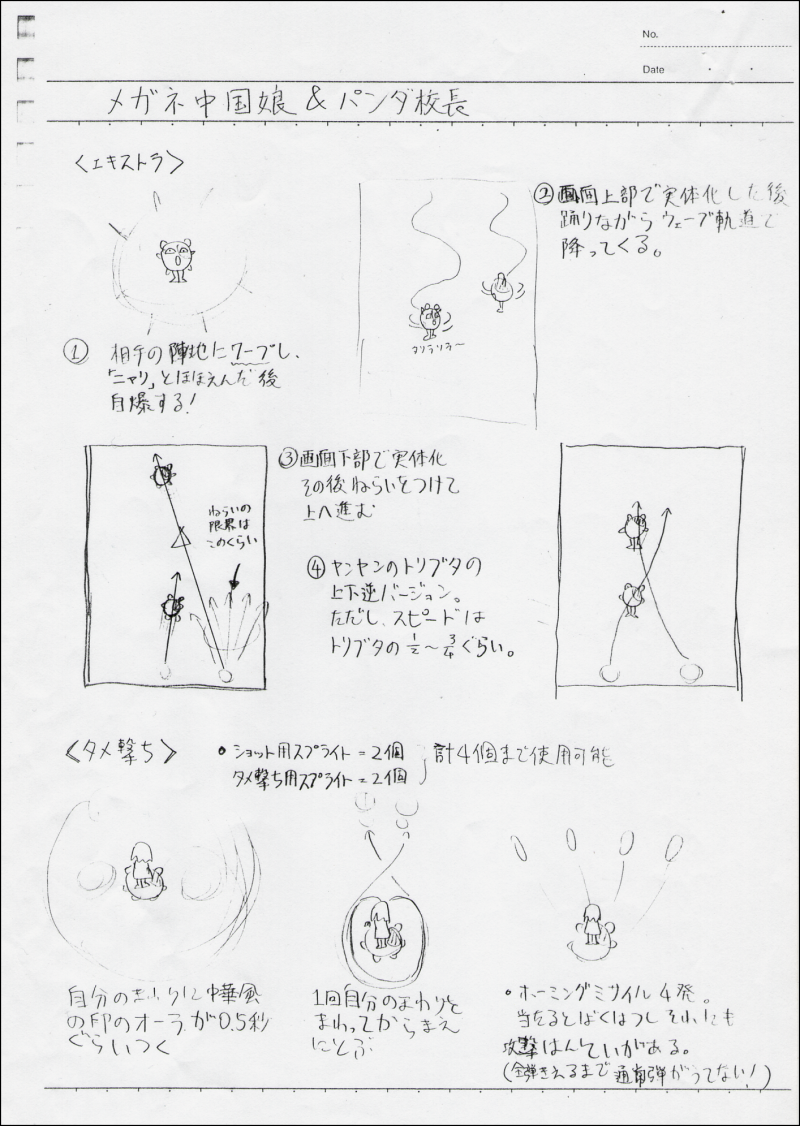 No.
Date
メガネ中国娘&パンダ校長
〈エキストラ〉
① 相手の陣地にワープし、
「ニヤリ」とほほえんだ後
自爆する!
②画面上部で実体化した後
踊りながらウェーブ軌道で
降ってくる。
③画面下部で実体化
その後ねらいをつけて
上へ進む
ねらいの
限界は
このくらい
④ヤンヤンのトリブタの
上下逆バージョン。
ただし、スピードは
トリブタの1/2〜3/4ぐらい。
〈タメ撃ち〉
・ショット用スプライト=2個
タメ撃ち用スプライト=2個
計4個まで使用可能
自分のまわりに中華風
の印のオーラが0.5秒
ぐらいつく
1回自分のまわりを
まわってからまえ
にとぶ
・ホーミングミサイル4発。
当たるとばくはつしそれにも
攻撃はんていがある。
(全弾きえるまで通常弾がうてない!)